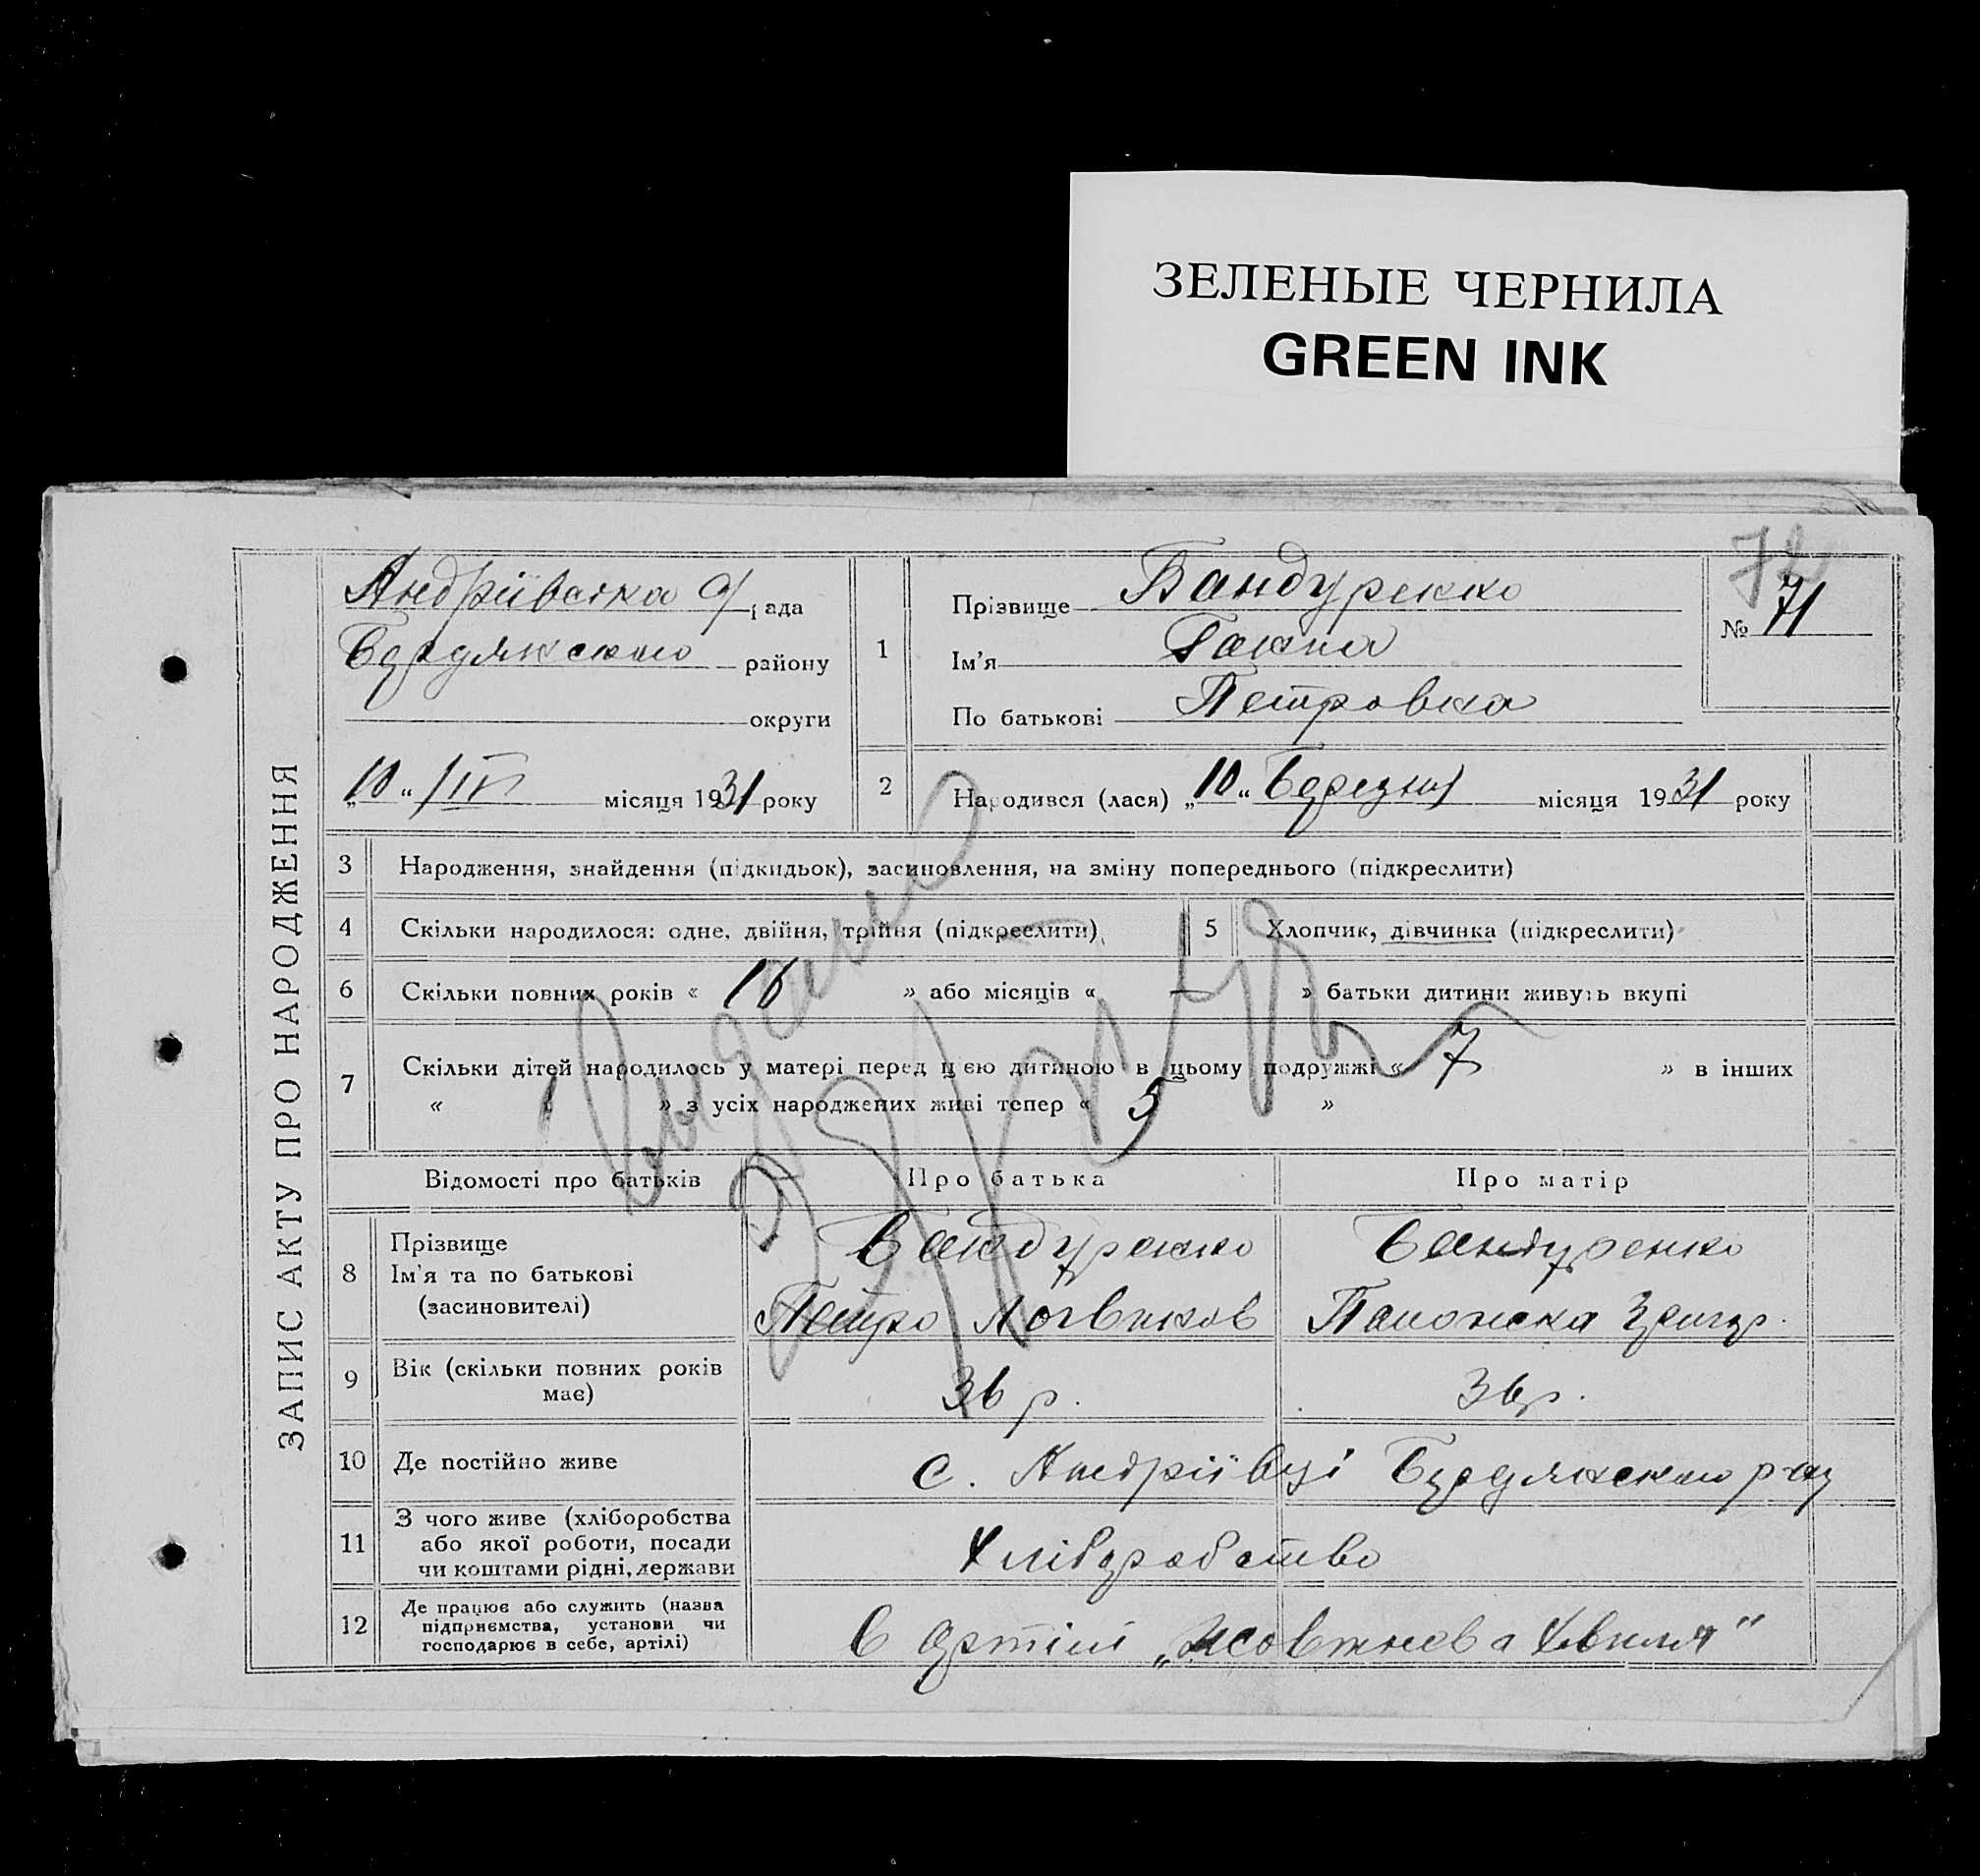 ЗЕЛЕНЫЕ ЧЕРНИЛА
GREEN INK
72
ЗАПИС АКТУ ПРО НАРОДЖЕННЯ
Андріївська с/рада
Бердянского району
округи
„10“ /III місяця 1931 року
1
Прізвище Бандуренко
Ім'я Ганна
По батькові Петровна
№ 71
2 Народився (лася) „10“ Березня місяця 1931 року
3 Народження, знайдення (підкидьок), засиновлення, на зміну попереднього (підкреслити)
4 Скільки народилося: одне, двійня, трійня (підкреслити)
5 Хлопчик, дівчинка (підкреслити)
6 Скільки повних років « 16 » або місяців « — » батьки дитини живуть вкупі
7 Скільки дітей народилось у матері перед цією дитиною в цьому подружжі « 7 » в інших
« » з усіх народжених живі тепер « 5 »
Видано
Відомості про батьків Про батька Про матір
8 Прізвище
Ім'я та по батькові
(засиновителі)
Бандуренко
Петро Логвинов
Бандуренко
9 Вік (скільки повних років
має)
36 р. 36 р.
10 Де постійно живе с. Андріївці Бердянского р-ну
11 З чого живе (хліборобства
або якої роботи, посади
чи коштами рідні, держави
Хліборобство
12 Де працює або служить (назва
підприємства, установи чи
господарює в себе, артілі)
в артілі „Жовтнева Хвиля“